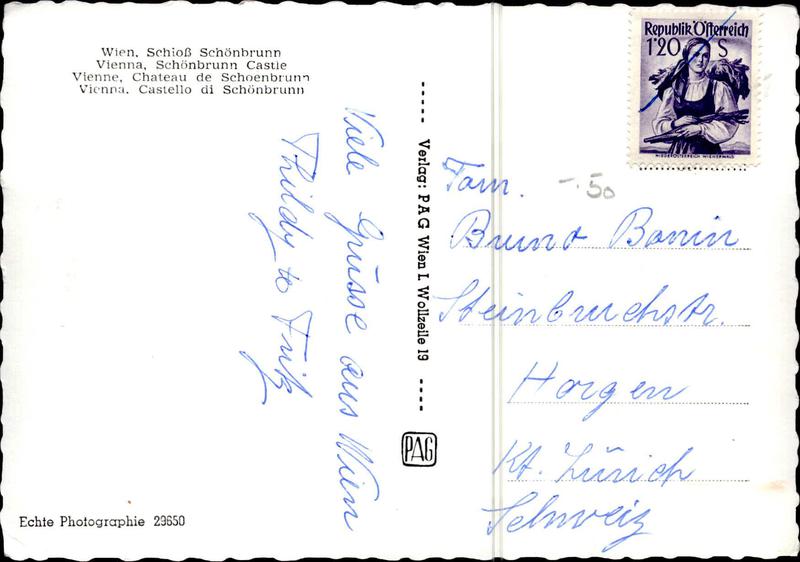 Wien, Schloß Schönbrunn
Vienna, Schönbrunn Castle
Vienne, Chateau de Schoenbrunn
Vienna, Castello di Schönbrunn
Viele Grüsse aus Wien
Thildy & Fritz
Echte Photographie 29650
Verlag: PAG Wien I. Wollzeile 19
PAG
Republik Österreich
1'20 S
NIEDERÖSTERREICH WIENERWALD
-.50
Fam.
Bruno Bonin
Steinbruchstr.
Horgen
Kt. Zürich
Schweiz